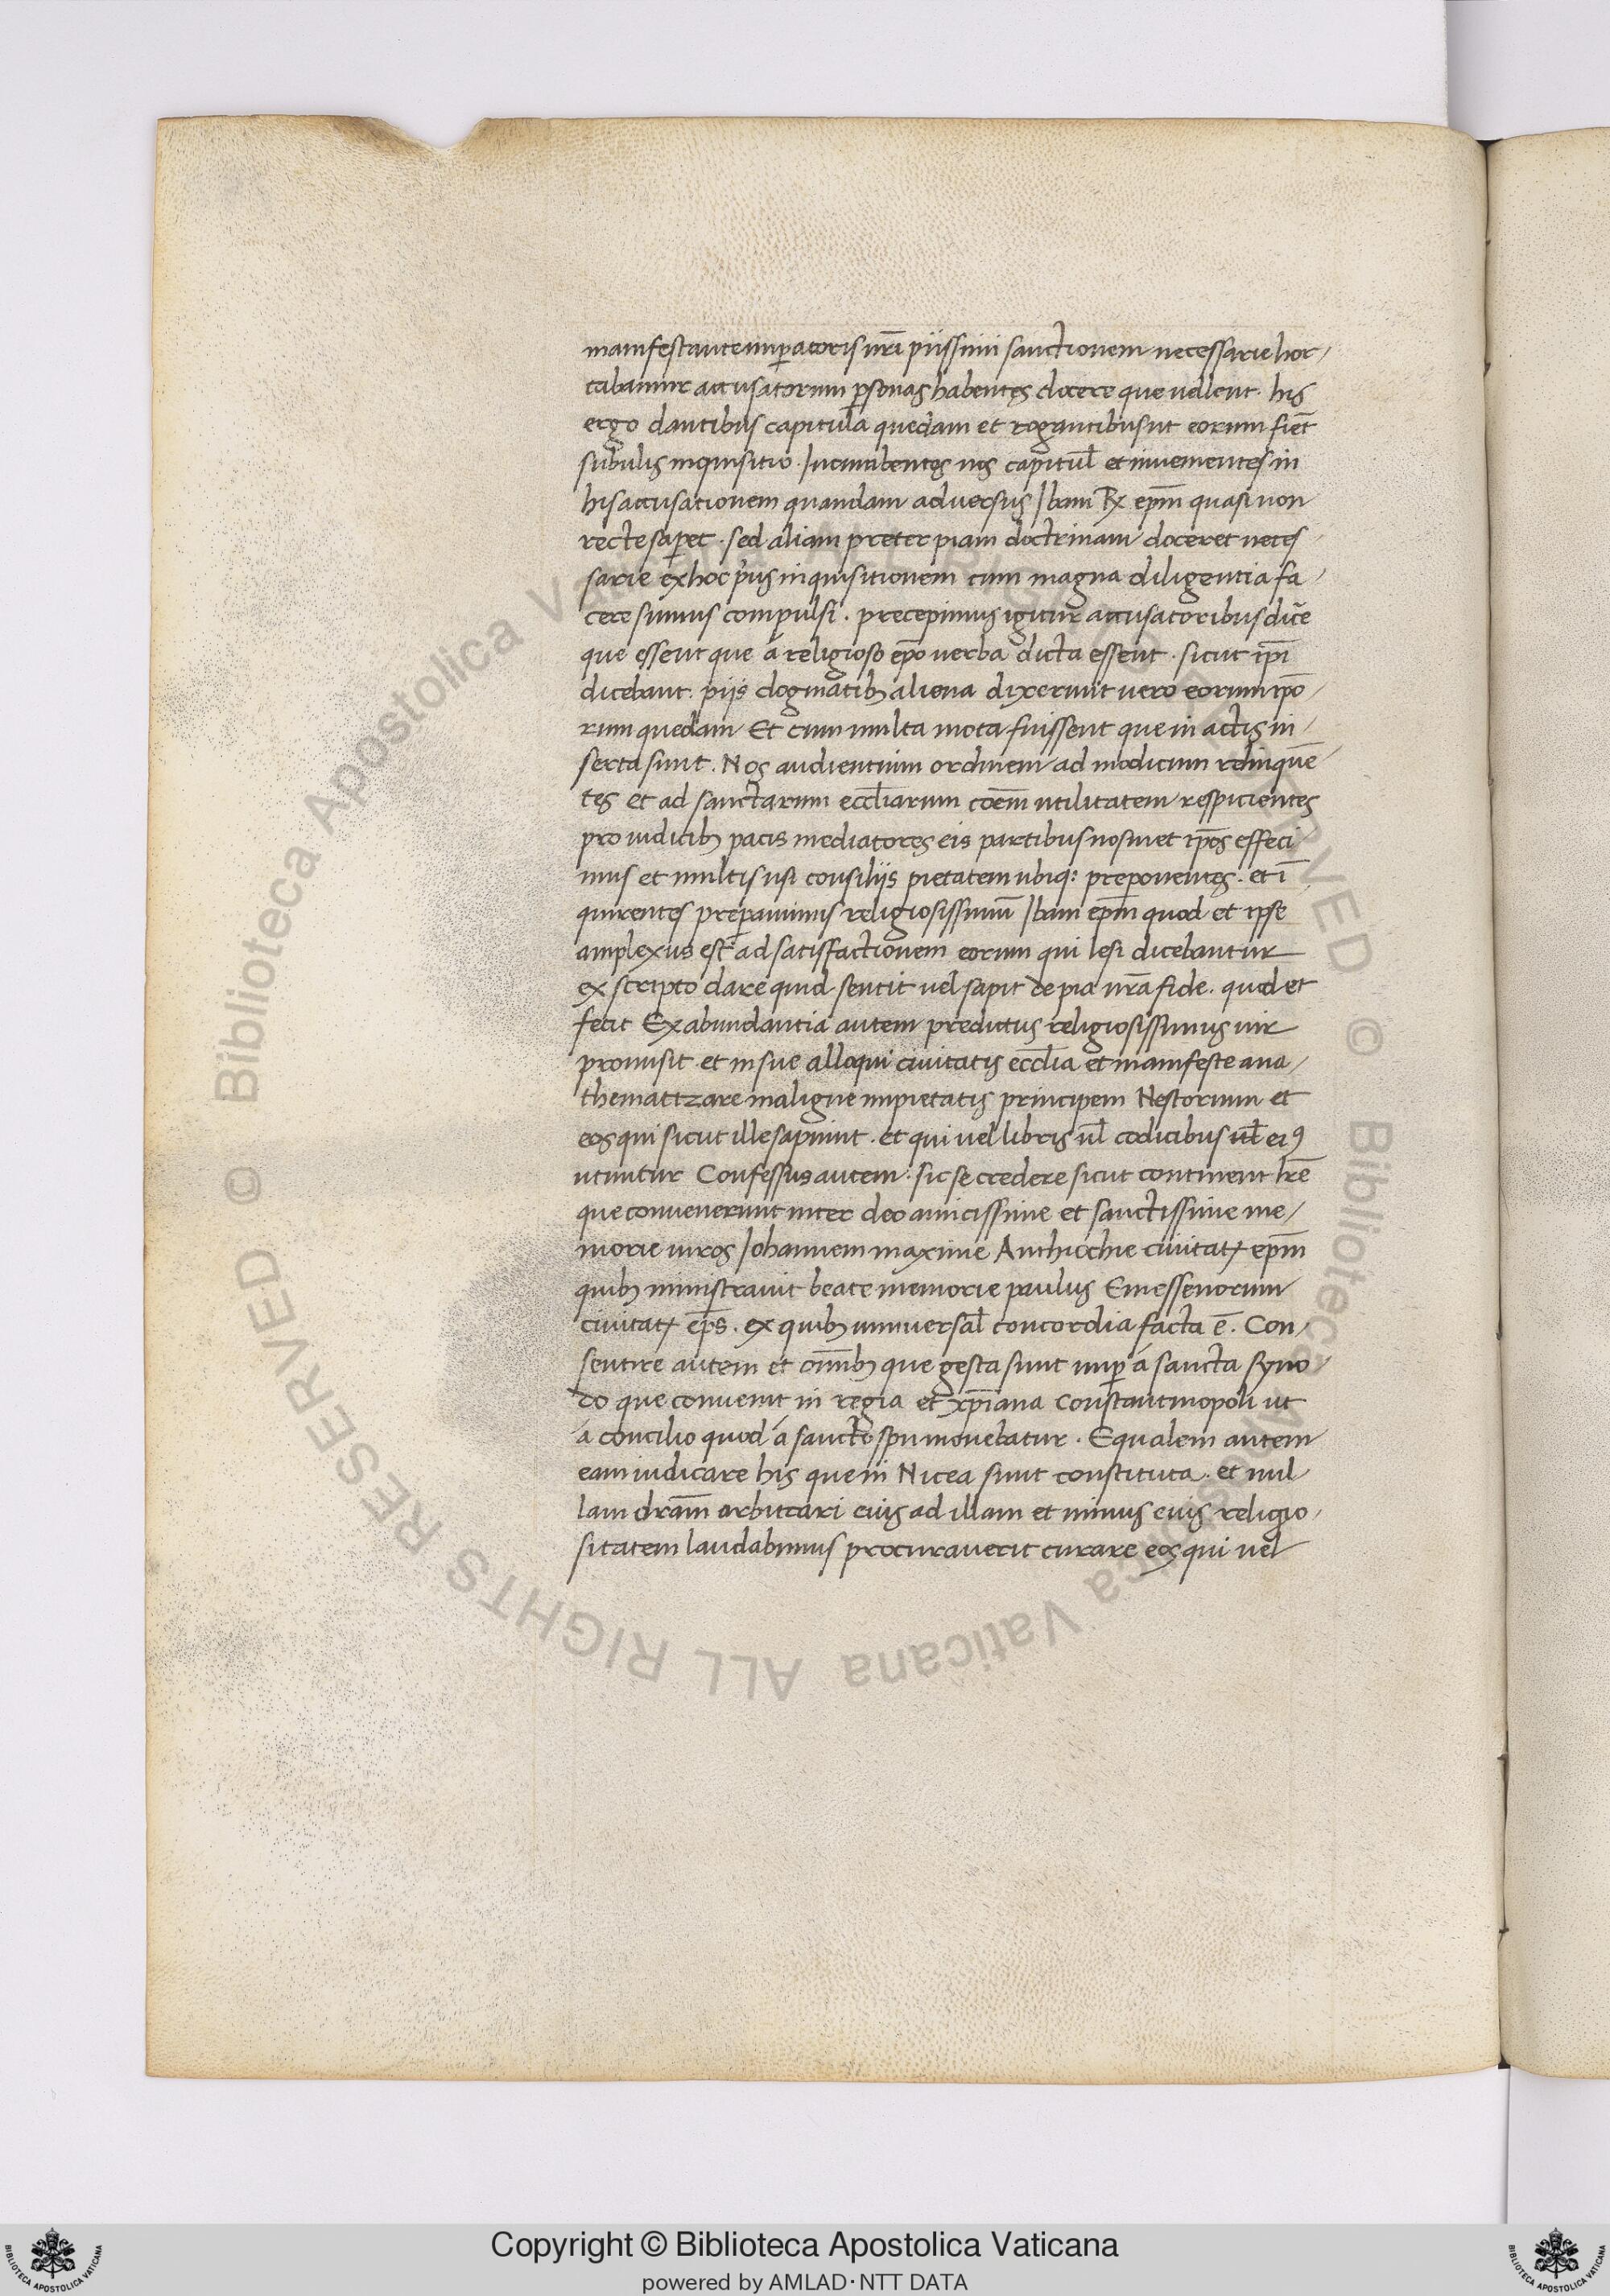 manifestante imperatoris nr̄i piissimi sanctionem necessarie hor-
tabamur accusatorum psonas habentes docere que vellent. his
ergo dantibus capitula quedam et rogantibus ut eorum fiet̄
subtilis inquisitio. Incumbentes nos capitul̄ et invenientes in
his accusationem quandam adversus Ibam Rx ep̄m quasi non
recte sapet. sed aliam preter piam doctrinam doceret neces-
sarie ex hoc p̓us inquisitionem cum magna diligentia fa-
cere sumus compulsi. precepimus igitur accusatoribus dic̄e
que essent que á religioso ep̄o verba dicta essent. sicut ip̄i
dicebant. piis dogmatibꝫ aliena dixerunt vero eorum ip̄o-
rum quedam Et cum multa mota fuissent que in actis in-
serta sunt. Nos audientium ordinem ad modicum relinquē-
tes et ad sanctarum eccl̄iarum cōem utilitatem respicientes
pro iudicibꝫ pacis mediatores eis partibus nosmet ip̄os effeci
mus et multis usi consiliis pietatem ubiqꝫ preponentes. et ī
quirentes preparavimus religiosissimū Ibam ep̄m quod et ipse
amplexus est ad satisfactionem eorum qui lesi dicebantur
ex scripto dare quid sentit vel sapit de pia nr̄a fide. quod et
fecit Ex abundantia autem predictus religiosissimus vir
promisit et in sue alloqui civitatis eccl̄ia et manifeste ana-
themattzare maligne impietatis principem Nestorium et
eos qui sicut ille sapiunt. et qui vel libris vl̄ codicibus vl̄ eiꝰ
utuntur Confessus autem. sic se credere sicut continent lr̄e
que convenerunt inter deo amicissime et sanctissime me-
morie viros Johannem maxime Anthiochie civitatꝭ ep̄m
quibꝫ ministravit beate memorie paulus Emessenorum
civitatꝭ ep̄s. ex quibꝫ universal̄ concordia facta ē. Con-
sentire autem et om̄ibꝫ que gesta sunt nup á sancta syno-
do que convenit in regia et xp̄iana Constantinopoli ut
á concilio quod á sancto spu movebatur. Equalem autem
eam iudicare his que in Nicea sunt constituta. et nul
lam dr̄am arbitrari eius ad illam et minus eius religio-
sitatem laudabimus procuraverit curare eos qui vel
Copyright © Biblioteca Apostolica Vaticana
powered by AMLAD·NTT DATA